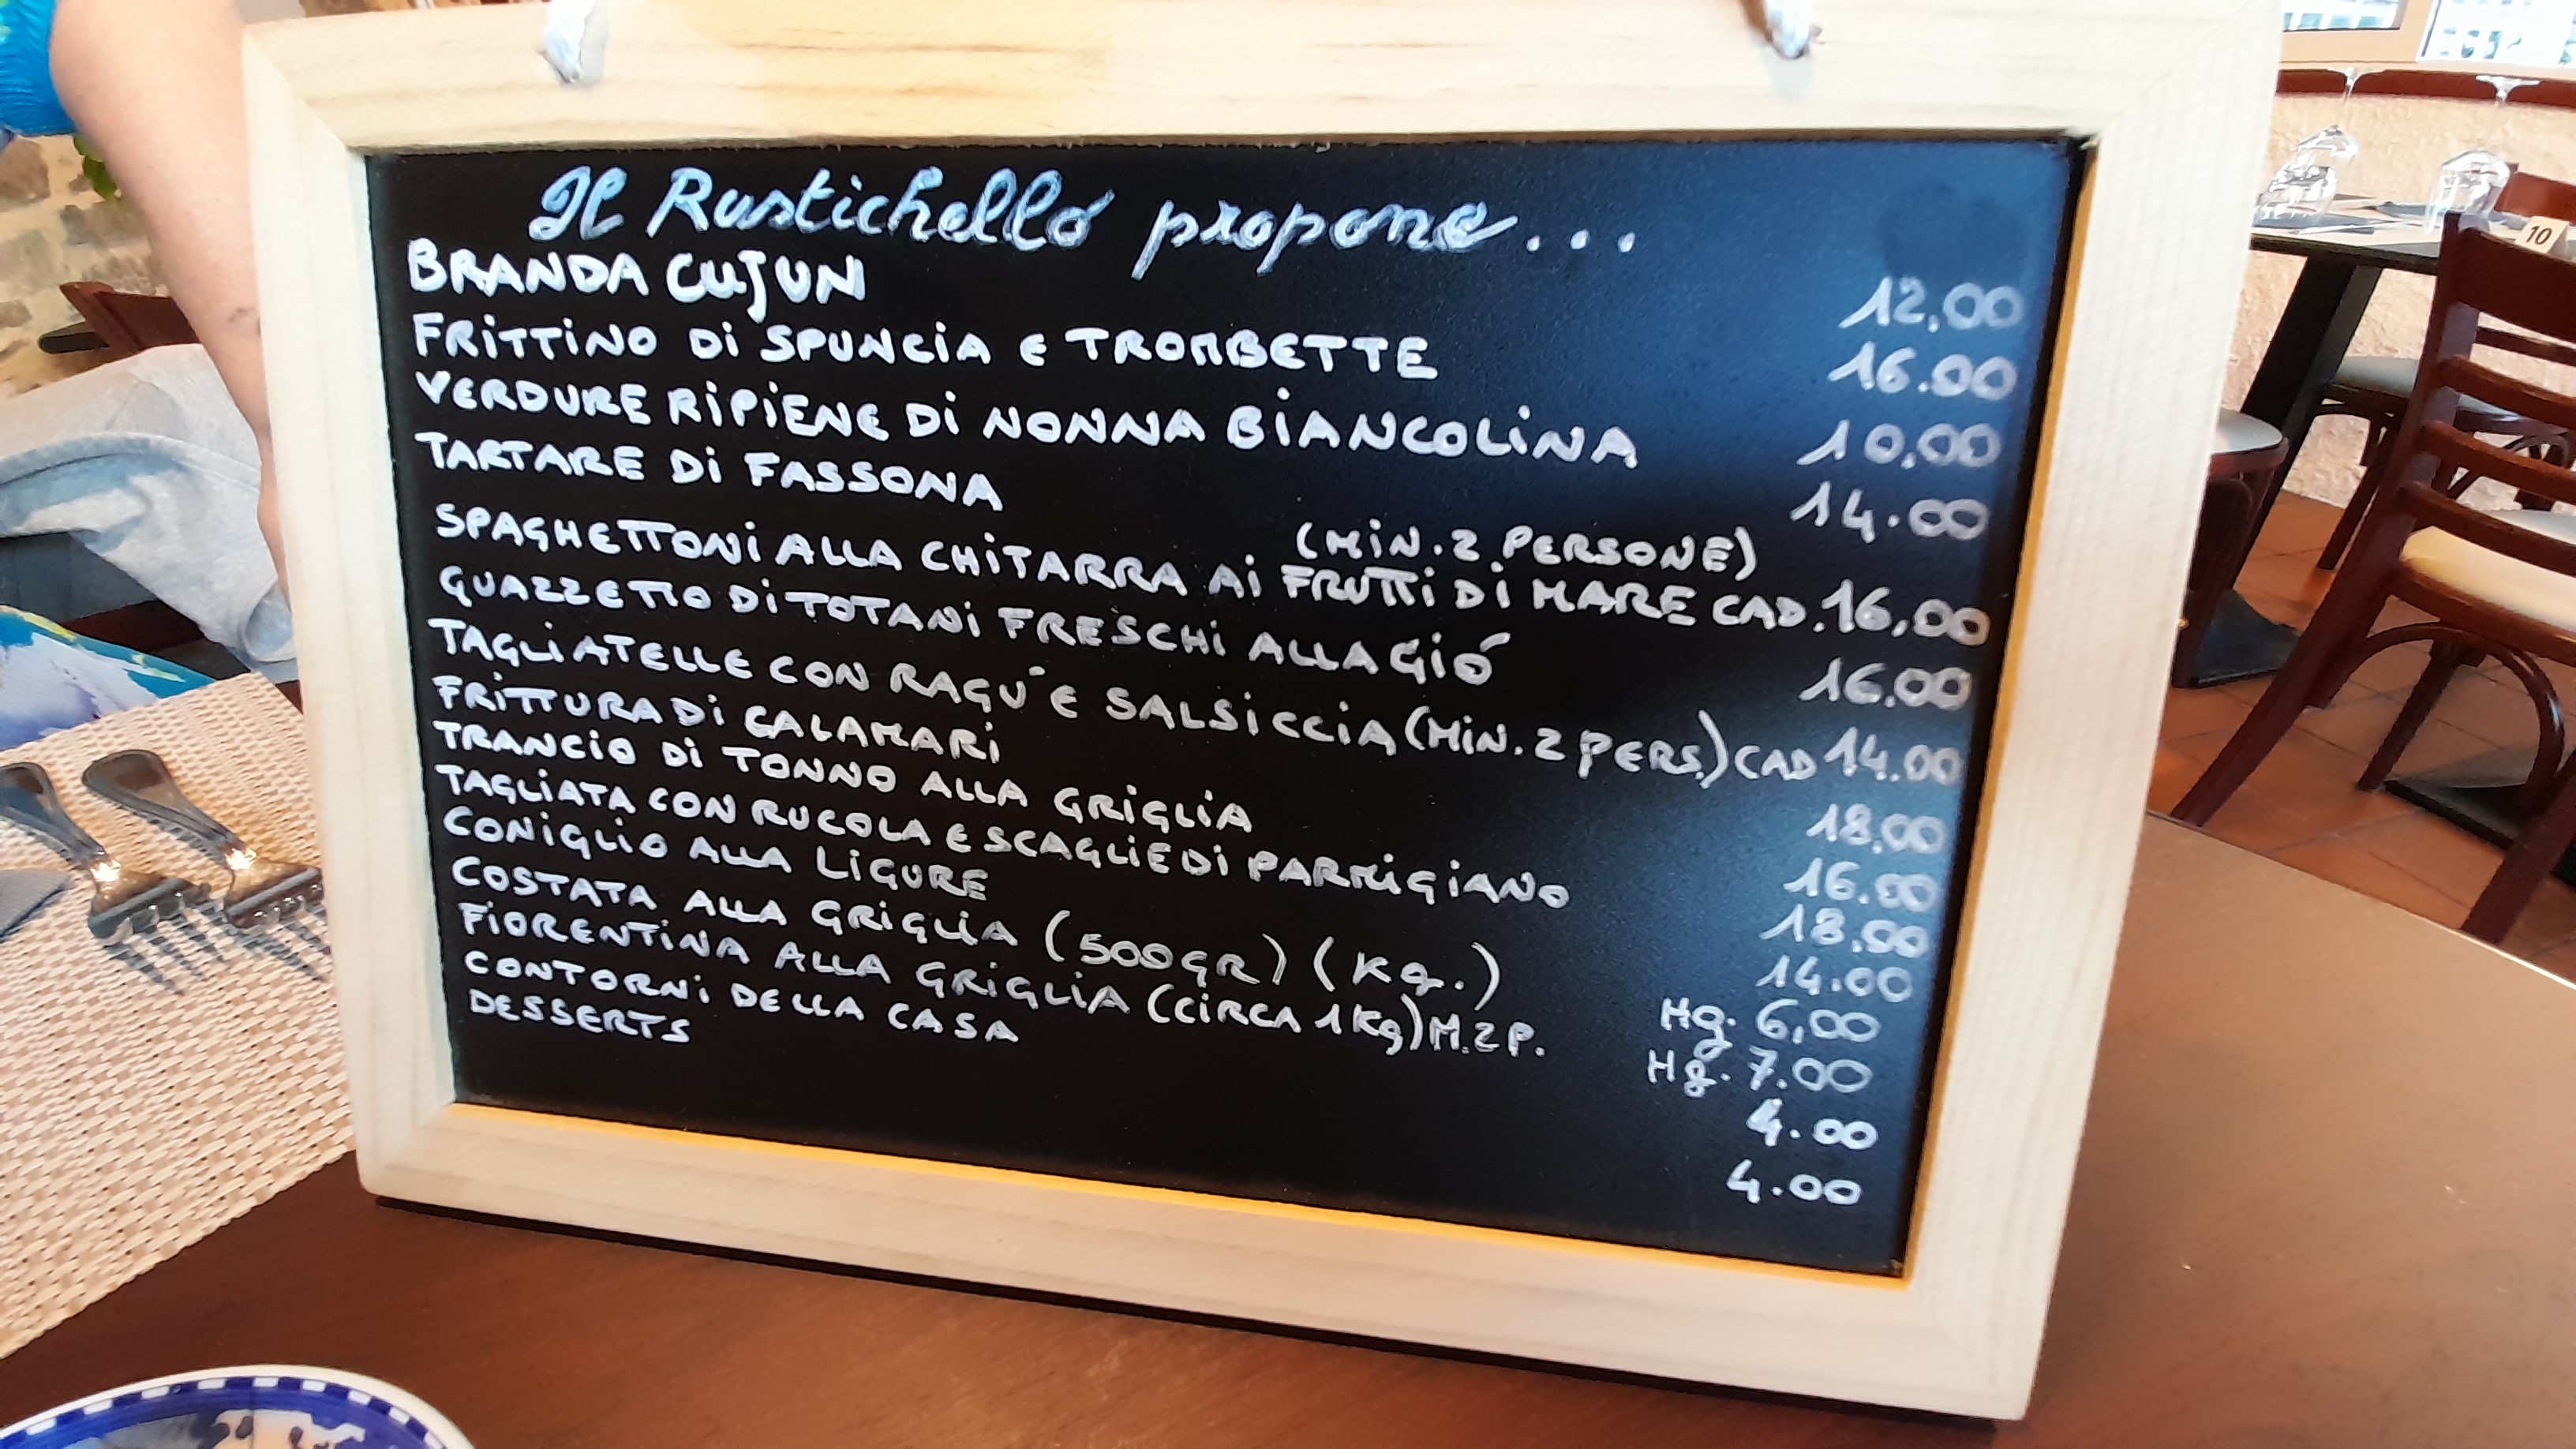 Il Rustichello propone...
BRANDA CUJUN 12,00
FRITTINO DI SPUNCIA E TROMBETTE 16.00
VERDURE RIPIENE DI NONNA BIANCOLINA 10,00
TARTARE DI FASSONA 14.00
(MIN. 2 PERSONE)
SPAGHETTONI ALLA CHITARRA AI FRUTTI DI MARE CAD. 16,00
GUAZZETTO DI TOTANI FRESCHI ALLA GIÓ 16.00
TAGLIATELLE CON RAGU' E SALSICCIA (MIN. 2 PERS.) CAD 14.00
FRITTURA DI CALAMARI 18,00
TRANCIO DI TONNO ALLA GRIGLIA 16.00
TAGLIATA CON RUCOLA E SCAGLIE DI PARMIGIANO 18.00
CONIGLIO ALLA LIGURE 14.00
COSTATA ALLA GRIGLIA (500GR) (Kg.) Hg. 6,00
FIORENTINA ALLA GRIGLIA (CIRCA 1 Kg) M. 2 P. Hg. 7.00
CONTORNI DELLA CASA 4.00
DESSERTS 4.00
10